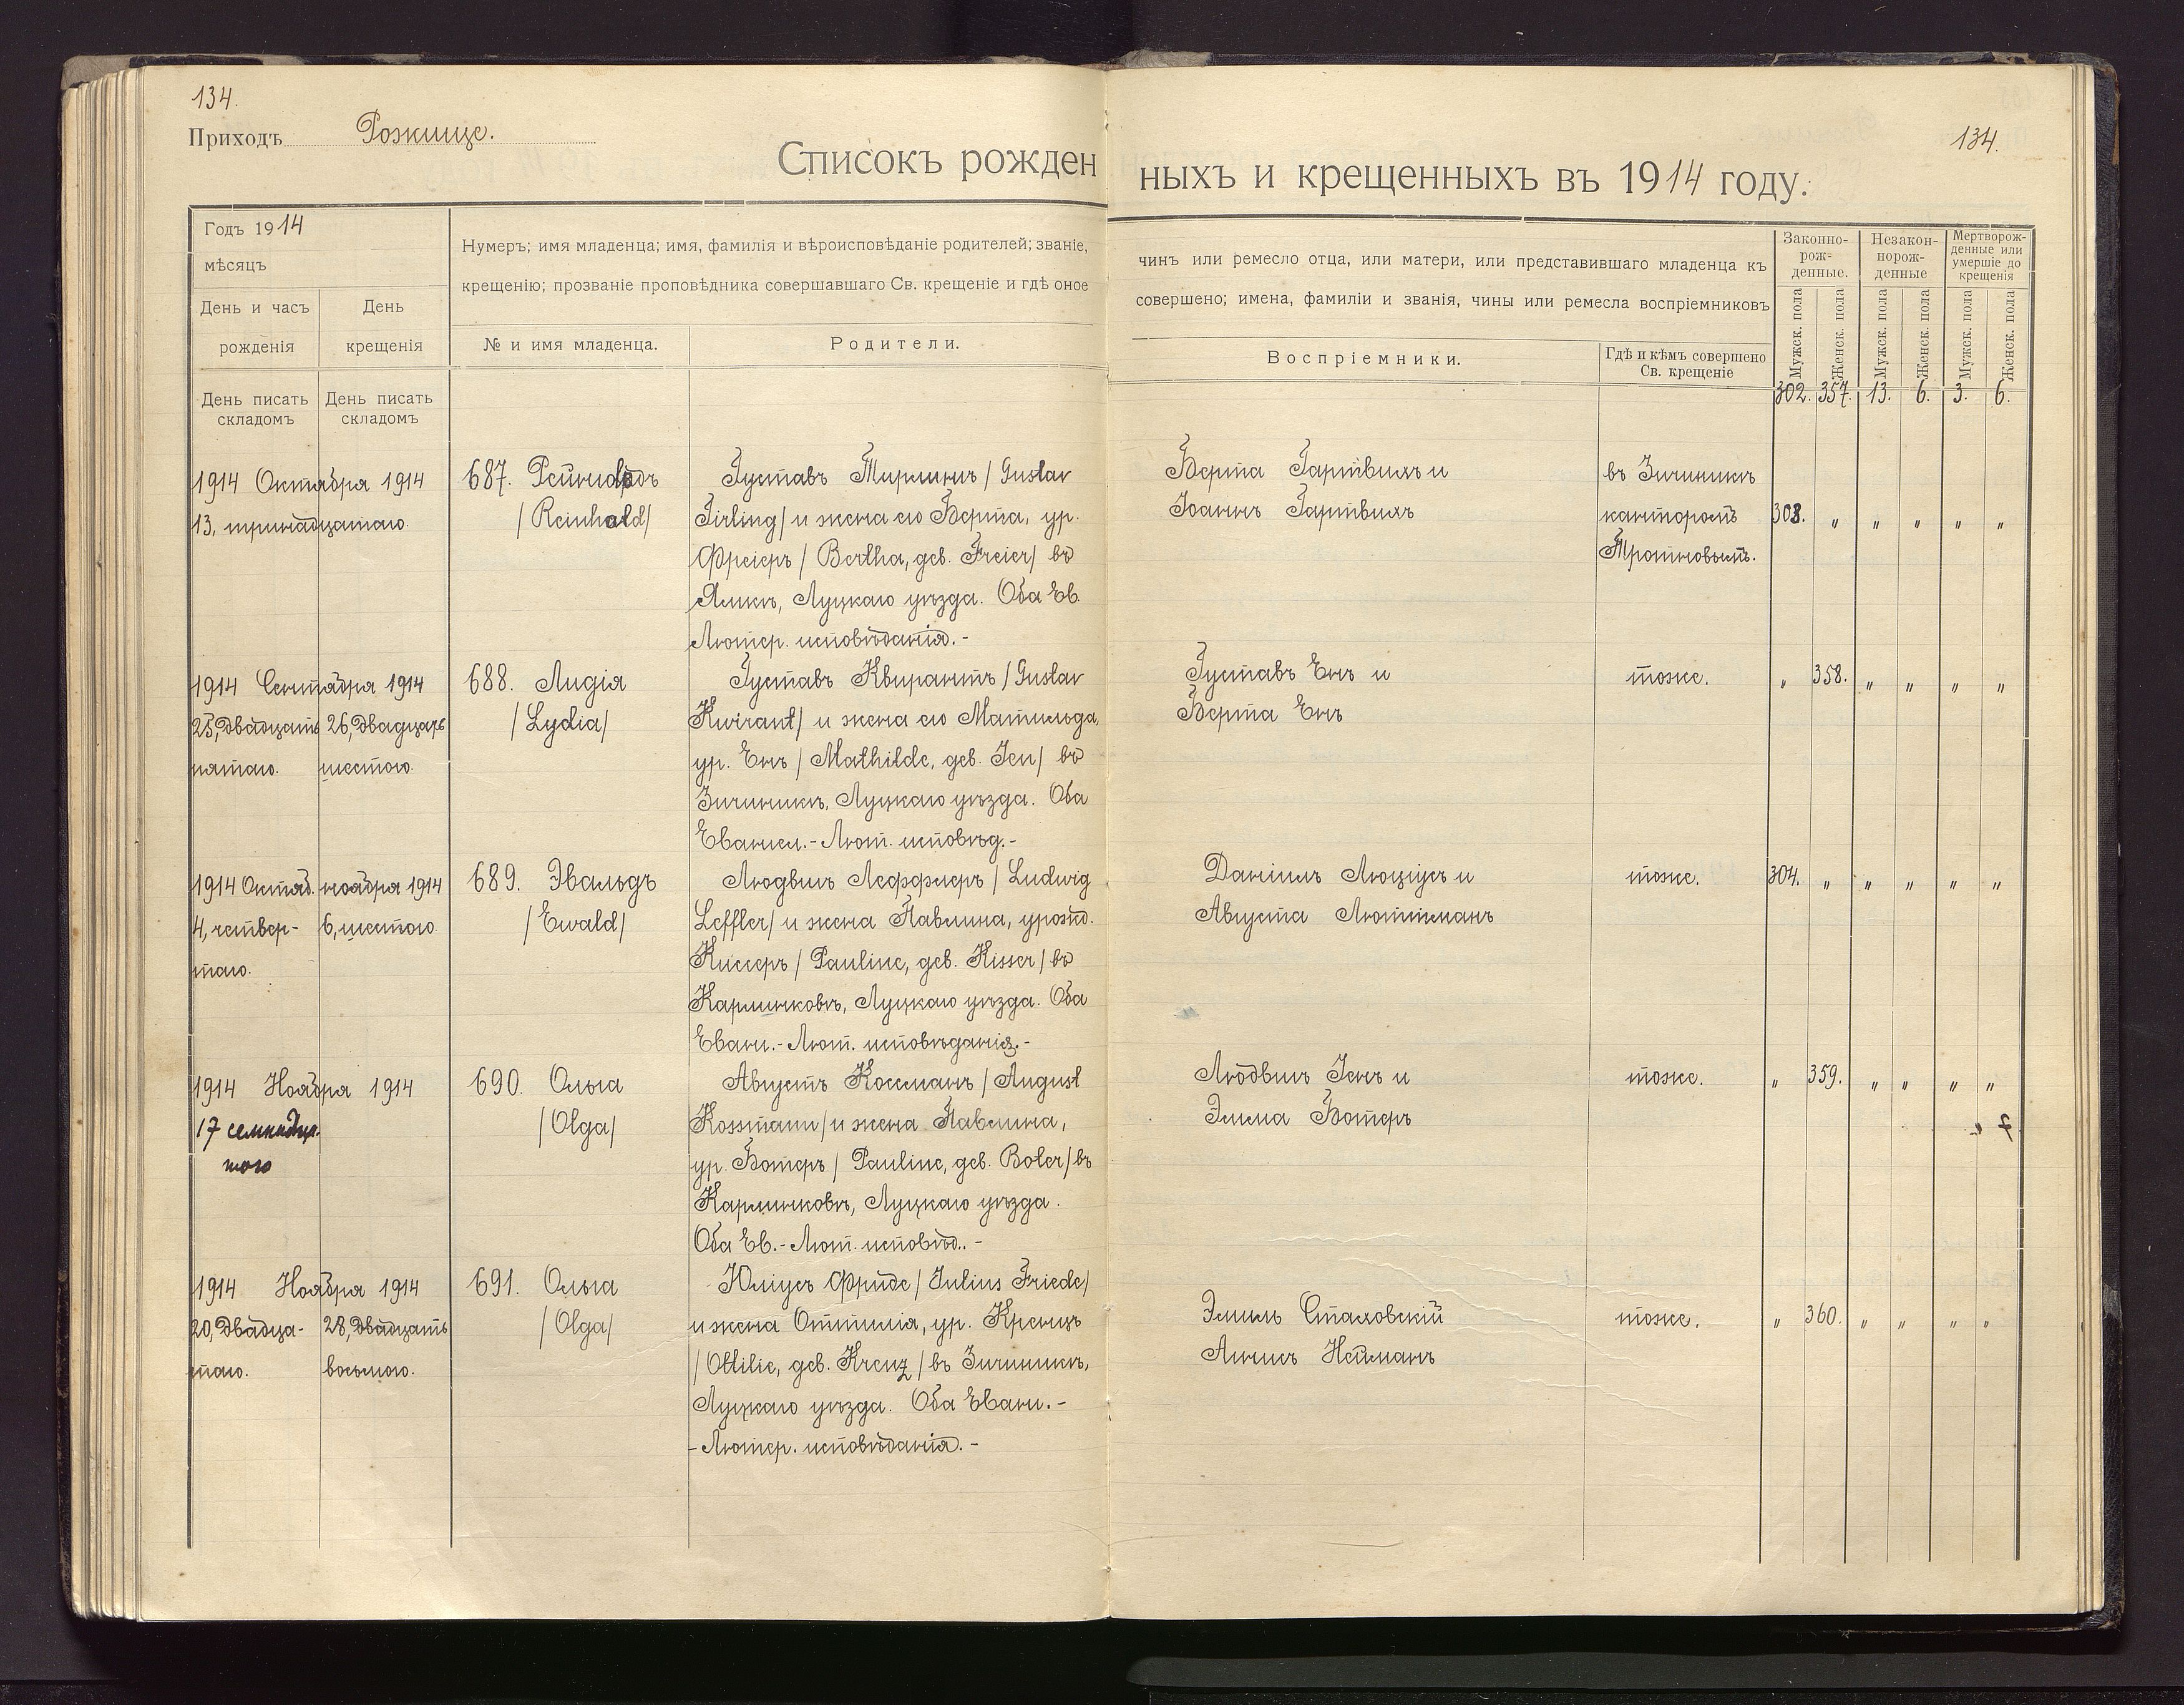 134.
Приходъ Рожище.
134.
Списокъ рожден ныхъ и крещенныхъ въ 1914 году.
Годъ 1914
мѣсяцъ
День и часъ рожденія
День крещенія
Нумеръ; имя младенца; имя, фамилія и вѣроисповѣданіе родителей; званіе, чинъ или ремесло отца, или матери, или представившаго младенца къ
крещенію; прозваніе проповѣдника совершавшаго Св. крещеніе и гдѣ оное совершено; имена, фамиліи и званія, чины или ремесла воспріемниковъ
№ и имя младенца.
Родители.
Воспріемники.
Гдѣ и кѣмъ совершено
Св. крещеніе
Законно-
рож-
денные.
Незакон-
норож-
денные
Мертворож-
денные или
умершіе до
крещенія
Мужск. пола
Женск. пола
Мужск. пола
Женск. пола
Мужск. пола
Женск. пола
День писать
складомъ
День писать
складомъ
302. 357. 13. 6. 3. 6.
1914 Октября 1914
13, тринадцатаго.
687. Рейнольдъ
/Reinhold/
Густавъ Тирлингъ /Gustav
Tirling/ и жена его Берта, ур.
Фреіеръ /Bertha, geb. Freier/ въ
Яликѣ, Луцкаго уѣзда. Оба Ев.
Лютер. исповѣданія.-
Берта Гартвихъ и
Іоаннъ Гартвихъ
въ Зичиникѣ
канторомъ
Тротновымъ.
303. " " " " "
1914 Сентября 1914
25, двадцать
пятаго.
26, двадцать
шестого.
688. Лидія
/Lydia/
Густавъ Квирантъ /Gustav
Kwirant/ и жена его Матильда,
ур. Енъ /Mathilde, geb. Jen/ въ
Зичиникѣ, Луцкаго уѣзда. Оба
Евангел.-Лют. исповѣд.-
Густавъ Енъ и
Берта Енъ
тоже.
" 358. " " " "
1914 Октяб. ноября 1914
4, четвер-
таго.
6, шестого
689. Эвальдъ
/Ewald/
Людвигъ Леффлеръ /Ludwig
Leffler/ и жена Павлина, урожд.
Киссеръ /Pauline, geb. Kisser/ въ
Карлинковѣ, Луцкаго уѣзда. Оба
Еванг.-Лют. исповѣданія.-
Даніилъ Люціусъ и
Августа Люттманъ
тоже.
304. " " " " "
1914 Ноября 1914
17 семнадца-
того
690. Ольга
/Olga/
Августъ Коссманъ /August
Kossmann/ и жена Павлина,
ур. Ботеръ /Pauline, geb. Boter/ въ
Карлинковѣ, Луцкаго уѣзда.
Оба Ев.-Лют. исповѣд..-
Людвигъ Іенъ и
Элма Ботеръ
тоже.
" 359. " " " "
" 7
1914 Ноября 1914
20, двадца-
таго.
28, двадцать
восьмого.
691. Ольга
/Olga/
Юліусъ Фриде /Julius Friede/
и жена Оттилія, ур. Кренцъ
/Ottilie, geb. Krenz/ въ Зичиникѣ,
Луцкаго уѣзда. Оба Еванг.-
-Лютер. исповѣданія.-
Эмиль Стаховскій
Агнисъ Нейманъ
тоже.
" 360. " " " "